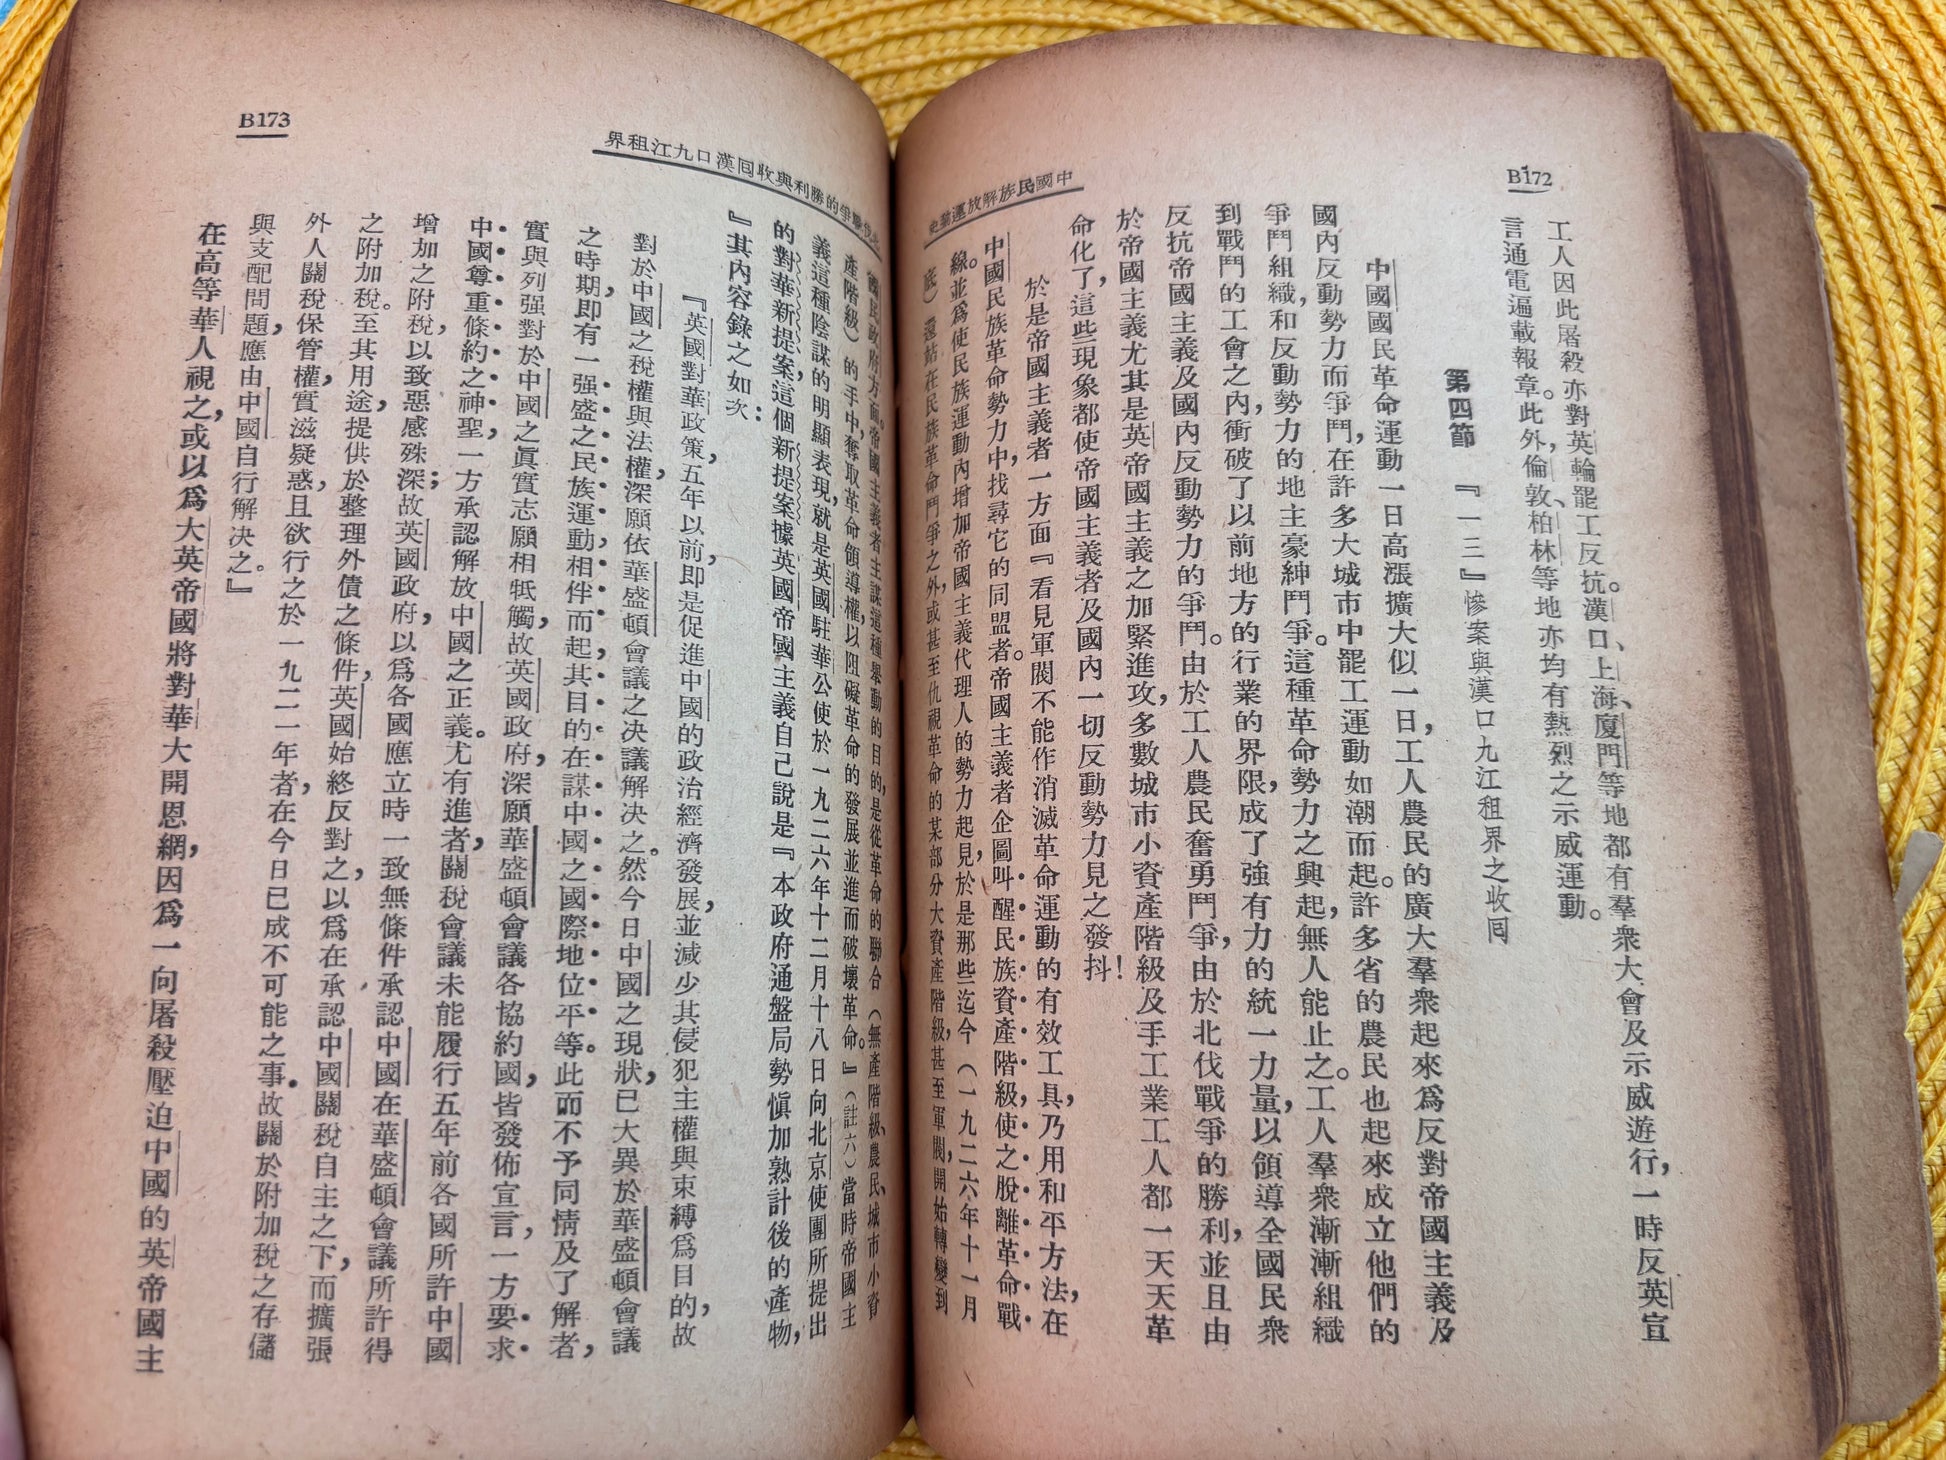 B172
中國民族解放運動史
工人因此屠殺亦對英輪罷工反抗。漢口、上海、廈門等地都有羣衆大會及示威遊行，一時反英宣
言通電遍載報章。此外，倫敦、柏林等地亦均有熱烈之示威運動。
第四節　『一三』慘案與漢口九江租界之收囘
中國國民革命運動一日高漲擴大似一日，工人農民的廣大羣衆起來爲反對帝國主義及
國內反動勢力而爭鬥，在許多大城市中罷工運動如潮而起。許多省的農民也起來成立他們的
爭鬥組織，和反動勢力的地主豪紳鬥爭。這種革命勢力之興起，無人能止之。工人羣衆漸漸組織
到戰鬥的工會之內，衝破了以前地方的行業的界限，成了強有力的統一力量，以領導全國民衆
反抗帝國主義及國內反動勢力的爭鬥。由於工人農民奮勇鬥爭，由於北伐戰爭的勝利，並且由
於帝國主義尤其是英帝國主義之加緊進攻，多數城市小資產階級及手工業工人都一天天革
命化了，這些現象都使帝國主義者及國內一切反動勢力見之發抖！
於是帝國主義者一方面『看見軍閥不能作消滅革命運動的有效工具，乃用和平方法，在
中國民族革命勢力中，找尋它的同盟者。帝國主義者企圖叫醒民族資產階級，使之脫離革命戰
線。並爲使民族運動內增加帝國主義代理人的勢力起見，於是那些迄今（一九二六年十一月
底）還站在民族革命鬥爭之外，或甚至仇視革命的某部分大資產階級，甚至軍閥，開始轉變到
B173
北伐戰爭的勝利與收囘漢口九江租界
國民政府方面。帝國主義者主謀這種舉動的目的，是從革命的聯合（無產階級、農民、城市小資
產階級）的手中，奪取革命領導權，以阻礙革命的發展並進而破壞革命。』（註六）當時帝國主
義這種陰謀的明顯表現，就是英國駐華公使於一九二六年十二月十八日向北京使團所提出
的對華新提案，這個新提案據英國帝國主義自己說是『本政府通盤局勢愼加熟計後的產物，
』其內容錄之如次：
『英國對華政策，五年以前，即是促進中國的政治經濟發展，並減少其侵犯主權與束縛爲目的，故
對於中國之稅權與法權，深願依華盛頓會議之决議解决之。然今日中國之現狀，已大異於華盛頓會議
之時期，即有一强盛之民族運動，相伴而起，其目的在謀中國之國際地位平等。此而不予同情及了解者，
實與列强對於中國之眞實志願相牴觸，故英國政府，深願華盛頓會議各協約國，皆發佈宣言，一方要求
中國尊重條約之神聖，一方承認解放中國之正義。尤有進者，關稅會議未能履行五年前各國所許中國
增加之附稅，以致惡感殊深；故英國政府，以爲各國應立時一致無條件承認中國在華盛頓會議所許得
之附加稅。至其用途，提供於整理外債之條件，英國始終反對之，以爲在承認中國關稅自主之下，而擴張
外人關稅保管權，實滋疑惑，且欲行之於一九二一年者，在今日已成不可能之事。故關於附加稅之存儲
與支配問題，應由中國自行解决之。』
在高等華人視之，或以爲大英帝國將對華大開恩網，因爲一向屠殺壓迫中國的英帝國主